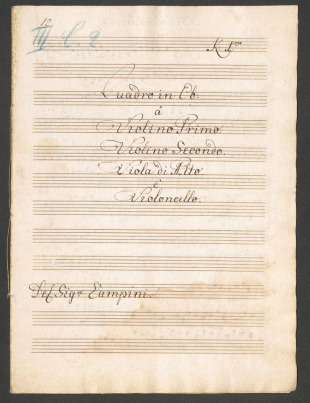 III C. 2.
Quadro in Eb.
à
Violino Primo.
Violino Secondo.
Viola di Alto
e
Violoncello.
Del Sigr